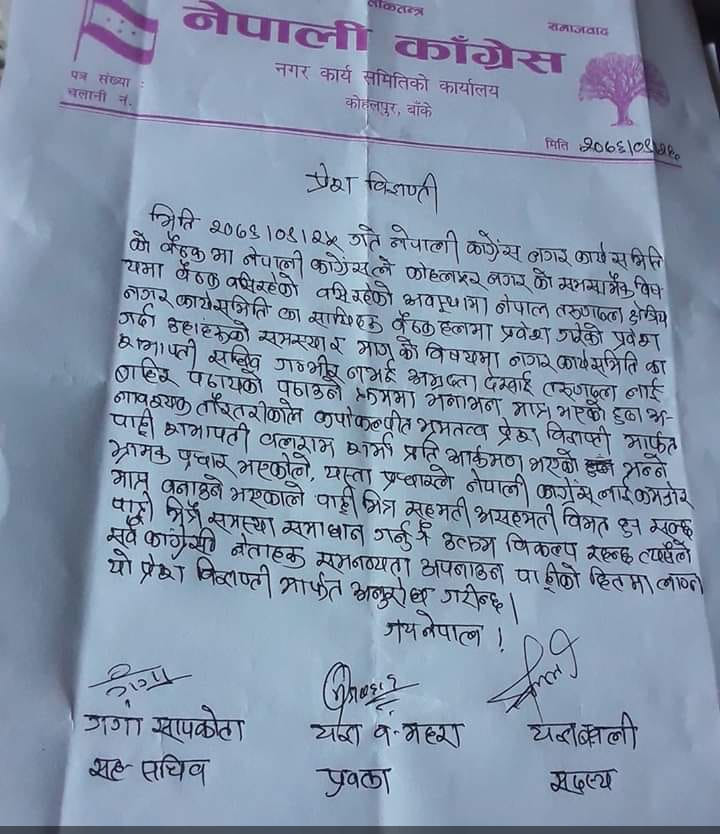 लोकतन्त्र
समाजवाद
नेपाली काँग्रेस
नगर कार्य समितिको कार्यालय
कोहलपुर, बाँके
पत्र संख्या :
चलानी नं.
मिति
प्रेश विज्ञप्ती
मिति गते नेपाली काग्रेस नगर कार्य समिति
को बैठक मा नेपाली काग्रेसले कोहलपुर नगर को समसामैक विष
यमा बैठक बसिरहेको बसिरहेको अवस्थामा नेपाल तरुणदल क्षेत्रिय
नगर कार्यसमिति का साथिहरु बैठकहलमा प्रवेश गरेको प्रवेश
गर्दा उहाँहरुको समस्यार माग को विषयमा नगर कार्यसमिति का
शभापती सचिव गम्भीर नभई अभद्रता देखाई तरुणदल लाई
बाहिर पठायको पठाउने क्रममा भनाभन मात्र भएको हुदा अ-
नावश्यक तौरतरीकाले कपोकल्पीत प्रेश विज्ञप्ती मार्फत
पार्टी शभापती बलराम शर्मा प्रति आर्कमण भएको भन्ने
भ्रामक प्रचार भएकोले, यस्ता प्रचारले नेपाली काग्रेस लाई कमजोर
मात्र बनाउने भएकाले पार्टी भित्र सहमती असहमती विमत हुन सक्छ
पार्टी भित्रै समस्या समाधान गर्नु नै उत्तम विकल्प रहन्छ त्यसैले
सबै काग्रेसी नेताहरु समनव्यता अपनाउन पार्टीको हितमा लाग्न
यो प्रेश विज्ञप्ती मार्फत अनुरोध गरीन्छ।
जय नेपाल !
गंगा सापकोटा
यश ब. महरा
सह-सचिव
प्रवक्ता
सदस्य